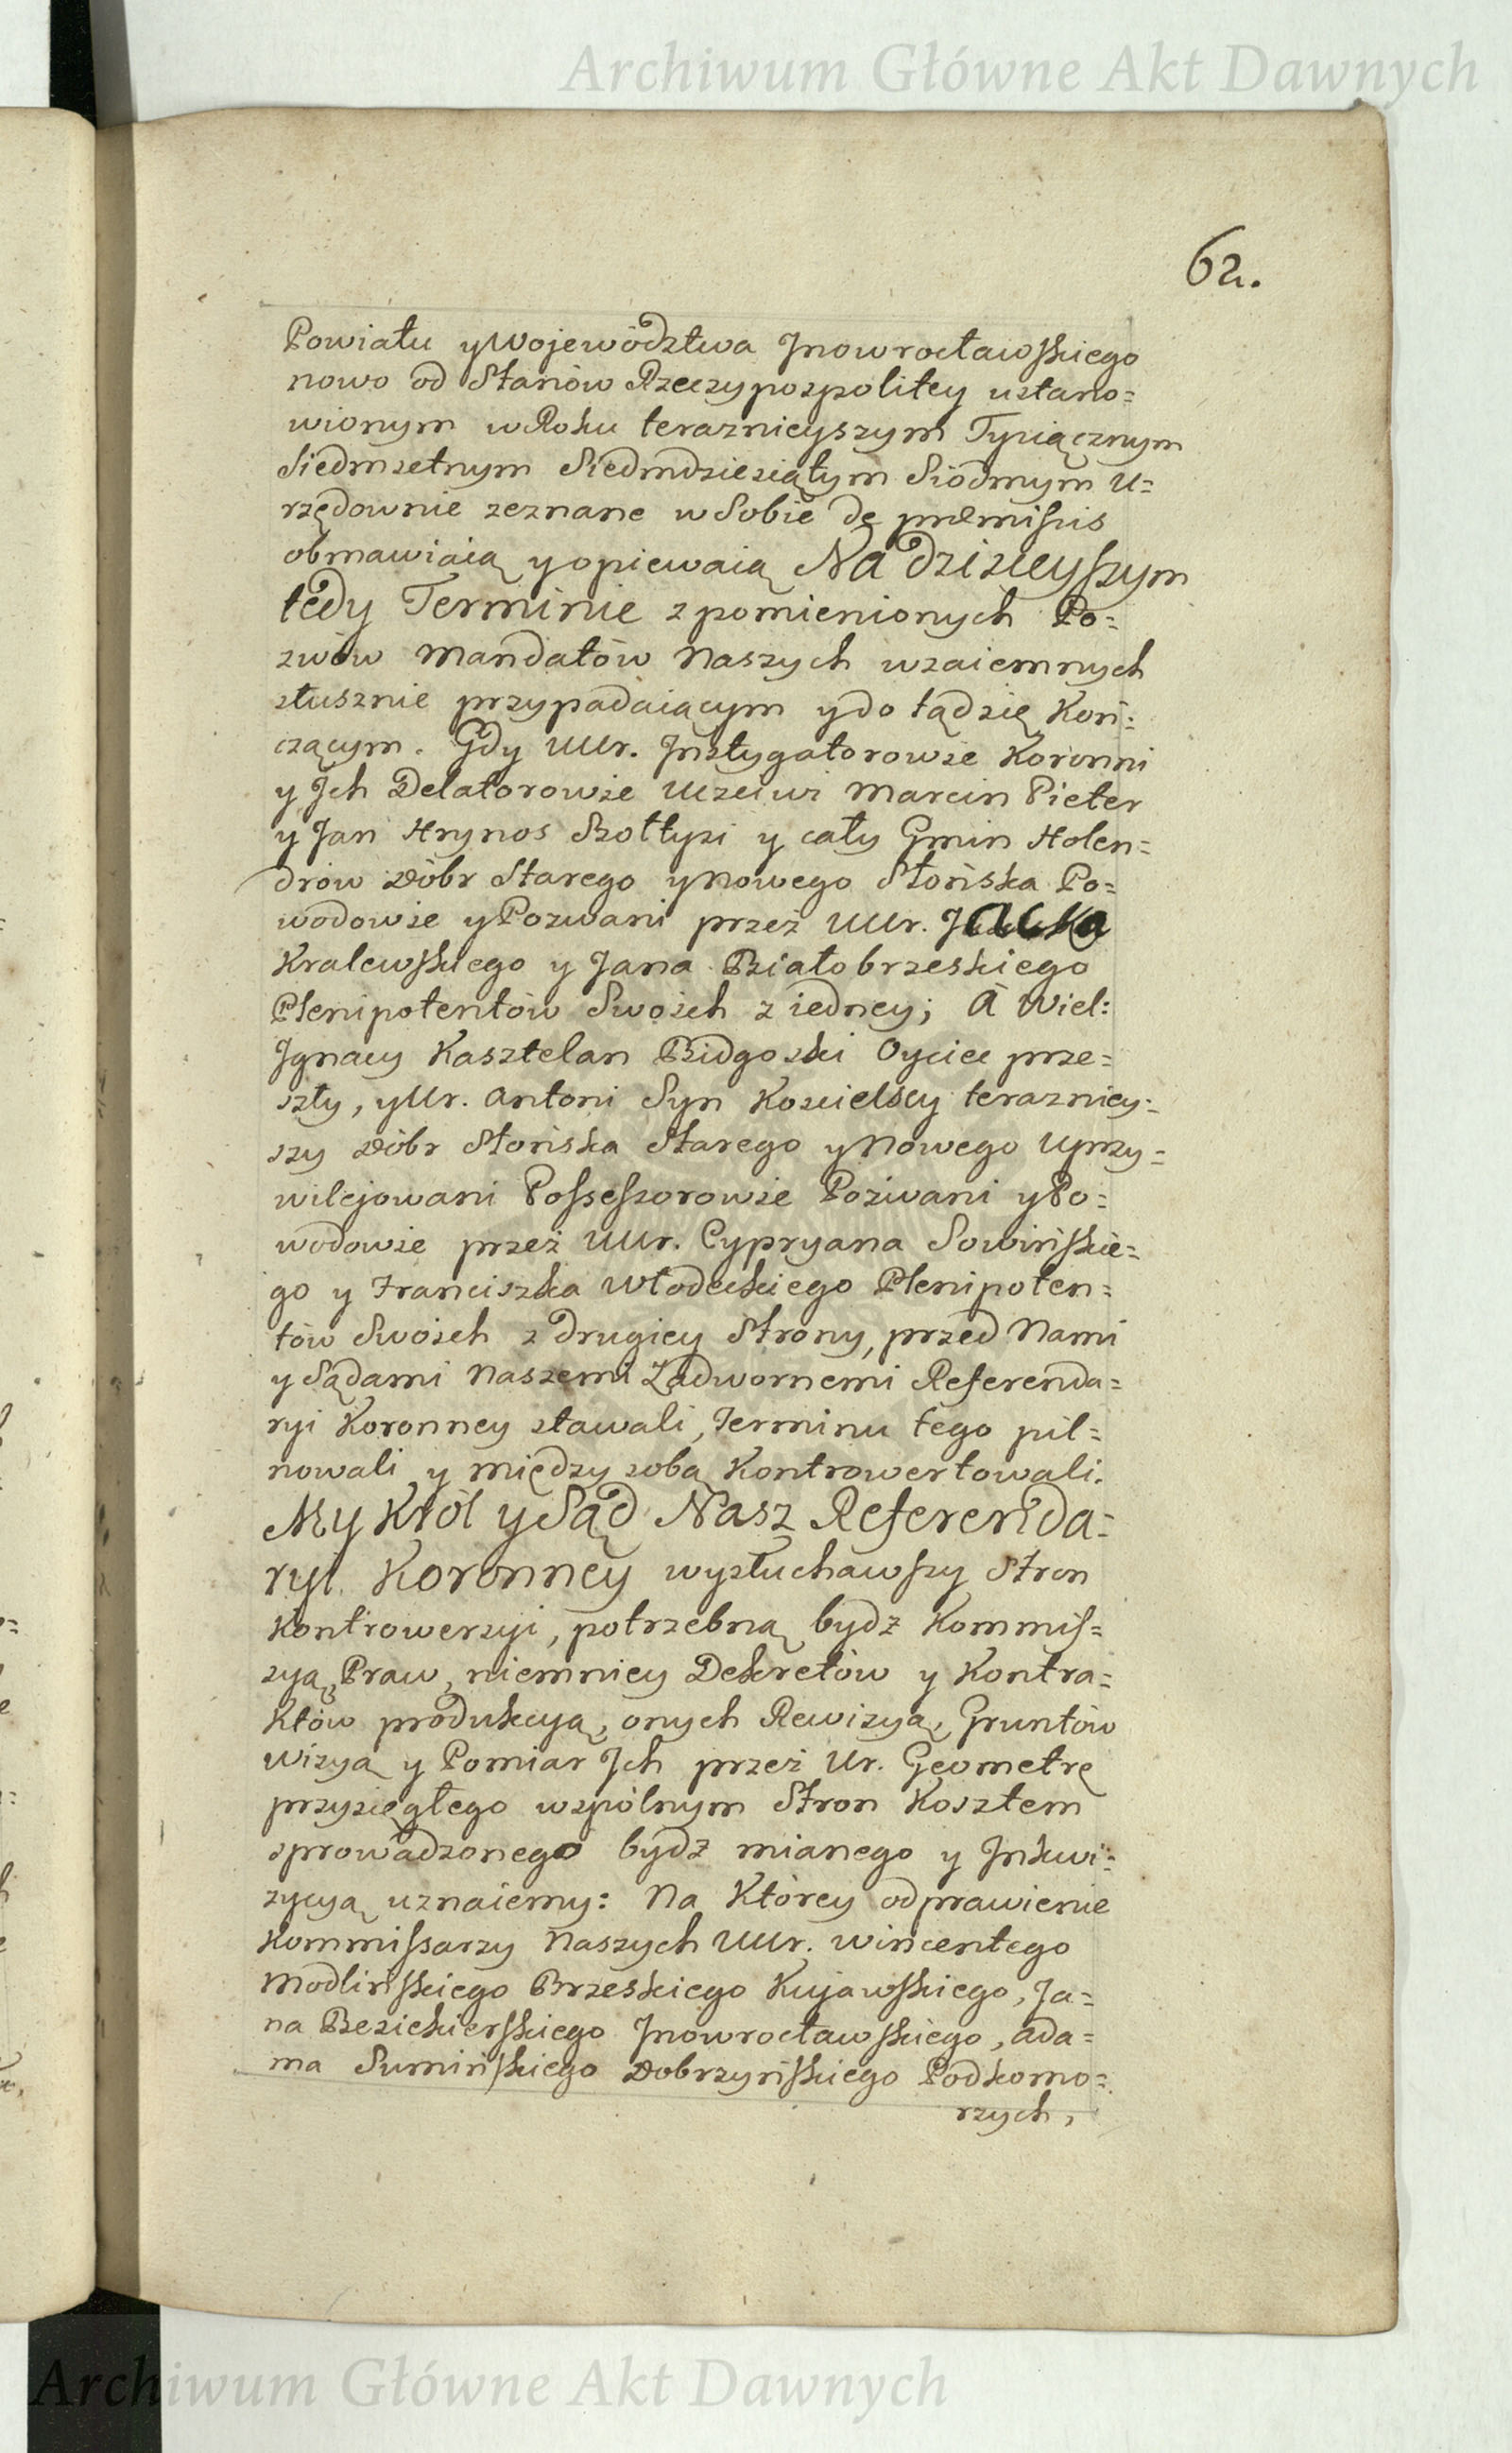 Archiwum Główne Akt Dawnych
62.
Powiatu y Wojewódżtwa Jnowrocławskiego
nowo od Stanów Rzeczypospolitey ustano=
wionym w Roku teraznieyszym Tysiącznym
Siedmsetnym Siedmdziesiątym Siódmym U=
rzędownie zeznane w Sobie de præmissis
obmawiaią y opiewaią Na dzisieyszym
tedy Terminie z pomienionych Po=
zwów Mandatów Naszych wzaiemnych
słusznie przypadaiącym y do tądsię Koń=
czącym. Gdy UUr. Jnstygatorowie Koronni
y Jch Delatorowie Uczciwi Marcin Pieter
y Jan Hrynos Szołtysi y cały Gmin Holen=
drów Dóbr Starego y Nowego Słońska Po=
wodowie y Pozwani przez UUr. Jacka
Kralewskiego y Jana Białobrzeskiego
Plenipotentów Swoich z iedney; A Wiel:
Jgnacy Kasztelan Bidgoski Oyciec prze=
szły, y Ur. Antoni Syn Kościelscy teraźniey=
szy Dóbr Słońska Starego y Nowego Uprzy=
wilejowani Possessorowie Pozwani y Po=
wodowie przez UUr. Cypryana Sowińskie=
go y Franciszka Włodeckiego Plenipoten=
tów Swoich z drugiey Strony, przed Nami
y Sądami Naszemi Zadwornemi Referenda=
ryi Koronney stawali, Terminu tego pil=
nowali y między sobą Kontrowertowali.
My Król y Sąd Nasz Referenda=
ryi Koronney wysłuchawszy Stron
Kontrowersyi, potrzebną bydz Kommis=
syą, Praw, niemniey Dekretów y Kontra=
któw produkcyą, onych Rewizyą, Gruntów
Wizyą y Pomiar Jch przez Ur. Geometrę
przysięgłego wspólnym Stron Kosztem
sprowadzonego bydz mianego y Jnkwi=
zycyą uznaiemy: Na Którey odprawienie
Kommissarzy Naszych UUr. Wincentego
Modlińskiego Brzeskiego Kujawskiego, Ja=
na Biesiekierskiego Jnowrocławskiego, Ada=
ma Sumińskiego Dobrzyńskiego Podkomo=
rzych,
Archiwum Główne Akt Dawnych